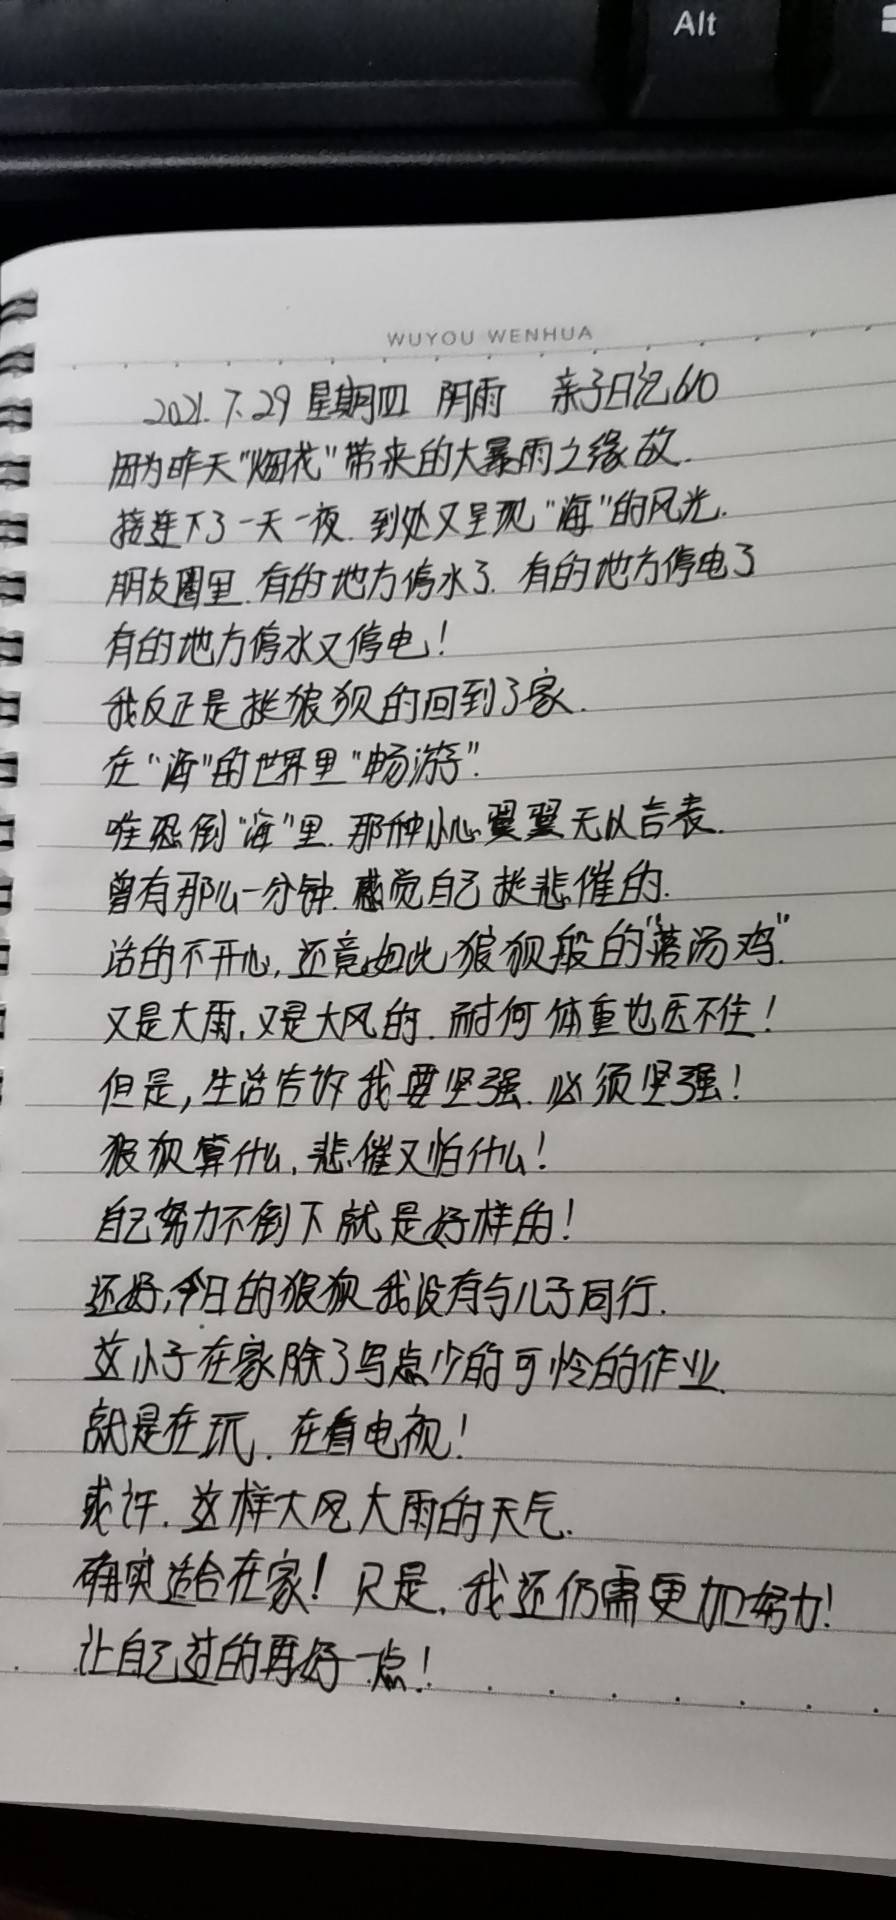 Alt
WUYOU WENHUA
2021.7.29 星期四 阴雨 亲子日记610
因为昨天"烟花"带来的大暴雨之缘故.
接连下了一天一夜.到处又呈现"海"的风光.
朋友圈里.有的地方停水了.有的地方停电了
有的地方停水又停电!
我反正是挺狼狈的回到了家.
在"海"的世界里"畅游".
唯恐倒"海"里.那种小心翼翼无以言表.
曾有那么一分钟.感觉自己挺悲催的.
活的不开心,还竟如此狼狈般的"落汤鸡".
又是大雨,又是大风的.耐何体重也压不住!
但是,生活告诉我要坚强.必须坚强!
狼狈算什么,悲催又怕什么!
自己努力不倒下就是好样的!
还好,今日的狼狈我没有与儿子同行.
这小子在家除了写点少的可怜的作业.
就是在玩.在看电视!
或许.这样大风大雨的天气.
确实适合在家!只是,我还仍需更加努力!
让自己过的再好一点!